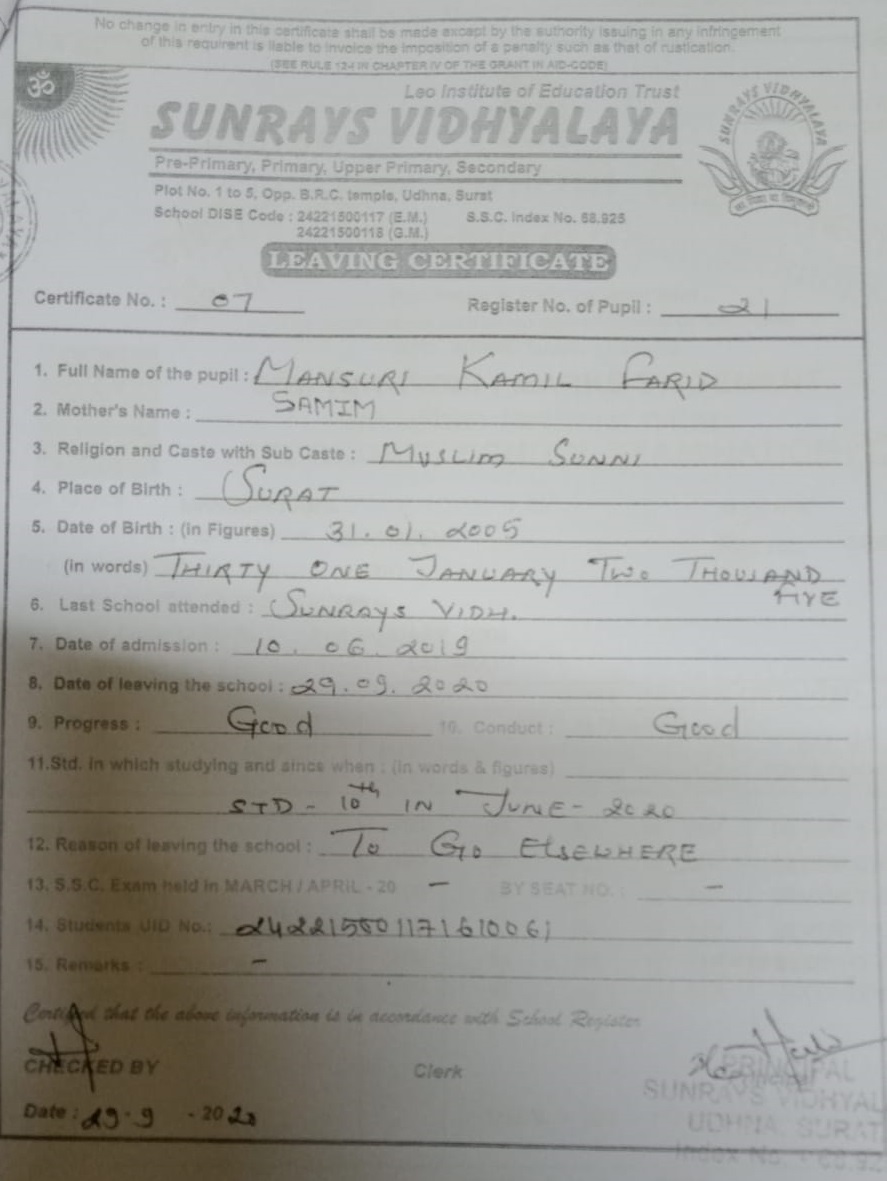 No change in entry in this certificate shall be made except by the authority issuing in any infringement
of this requirent is liable to invoice the imposition of a penalty such as that of rustication.
(SEE RULE 124 IN CHAPTER IV OF THE GRANT IN AID-CODE)
ॐ
Leo Institute of Education Trust
SUNRAYS VIDHYALAYA
SUNRAYS VIDHYALAYA
Pre-Primary, Primary, Upper Primary, Secondary
Plot No. 1 to 5, Opp. B.R.C. temple, Udhna, Surat
School DISE Code : 24221500117 (E.M.) S.S.C. Index No. 68.925
24221500118 (G.M.)
LEAVING CERTIFICATE
Certificate No. : 07 Register No. of Pupil : 21
1. Full Name of the pupil : MANSURI KAMIL FARID
2. Mother's Name : SAMIM
3. Religion and Caste with Sub Caste : MUSLIM SUNNI
4. Place of Birth : SURAT
5. Date of Birth : (in Figures) 31.01.2005
(in words) THIRTY ONE JANUARY TWO THOUSAND
FIVE
6. Last School attended : SUNRAYS VIDH.
7. Date of admission : 10.06.2019
8. Date of leaving the school : 29.09.2020
9. Progress : Good 10. Conduct : Good
11.Std. in which studying and since when : (in words & figures)
STD - 10th IN JUNE - 2020
12. Reason of leaving the school : TO GO ELSEWHERE
13. S.S.C. Exam held in MARCH / APRIL - 20 - BY SEAT NO. : -
14. Students UID No.: 242215001171610061
15. Remarks : -
Certified that the above information is in accordance with School Register
CHECKED BY Clerk
PRINCIPAL
SUNRAYS VIDHYAL
Date : 29.9 - 2020
UDHNA, SURAT
Index No. : 68.92